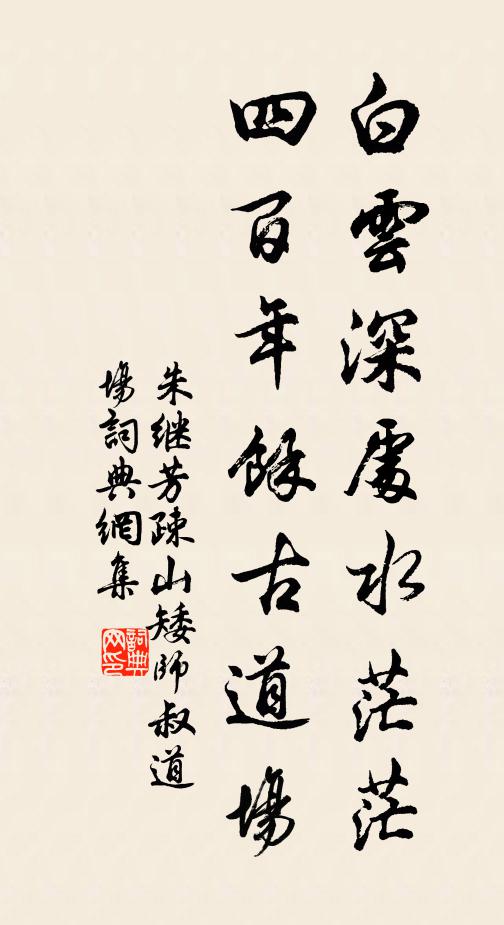 白雲深處水茫茫
四百年餘古道場
朱继芳疎山矮師叔道
場詞典網集
詞典
网印